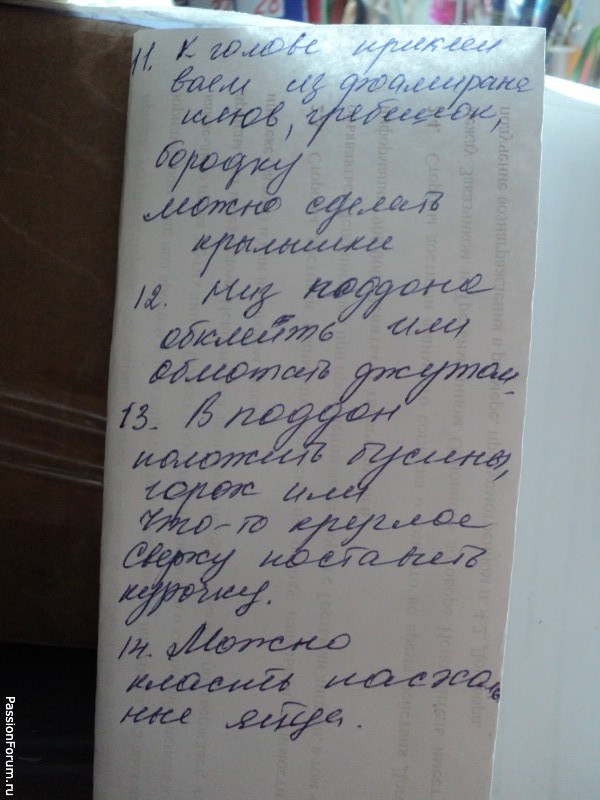 11. К голове приклеи
ваем из фоамирана
клюв, гребешок,
бородку
можно сделать
крылышки
12. Низ поддона
обклеить или
обмотать джутом.
13. В поддон
положить бусины,
горох или
что-то круглое
Сверху поставить
курочку.
14. Можно
класить пасхаль
ные яйца.
PassionForum.ru